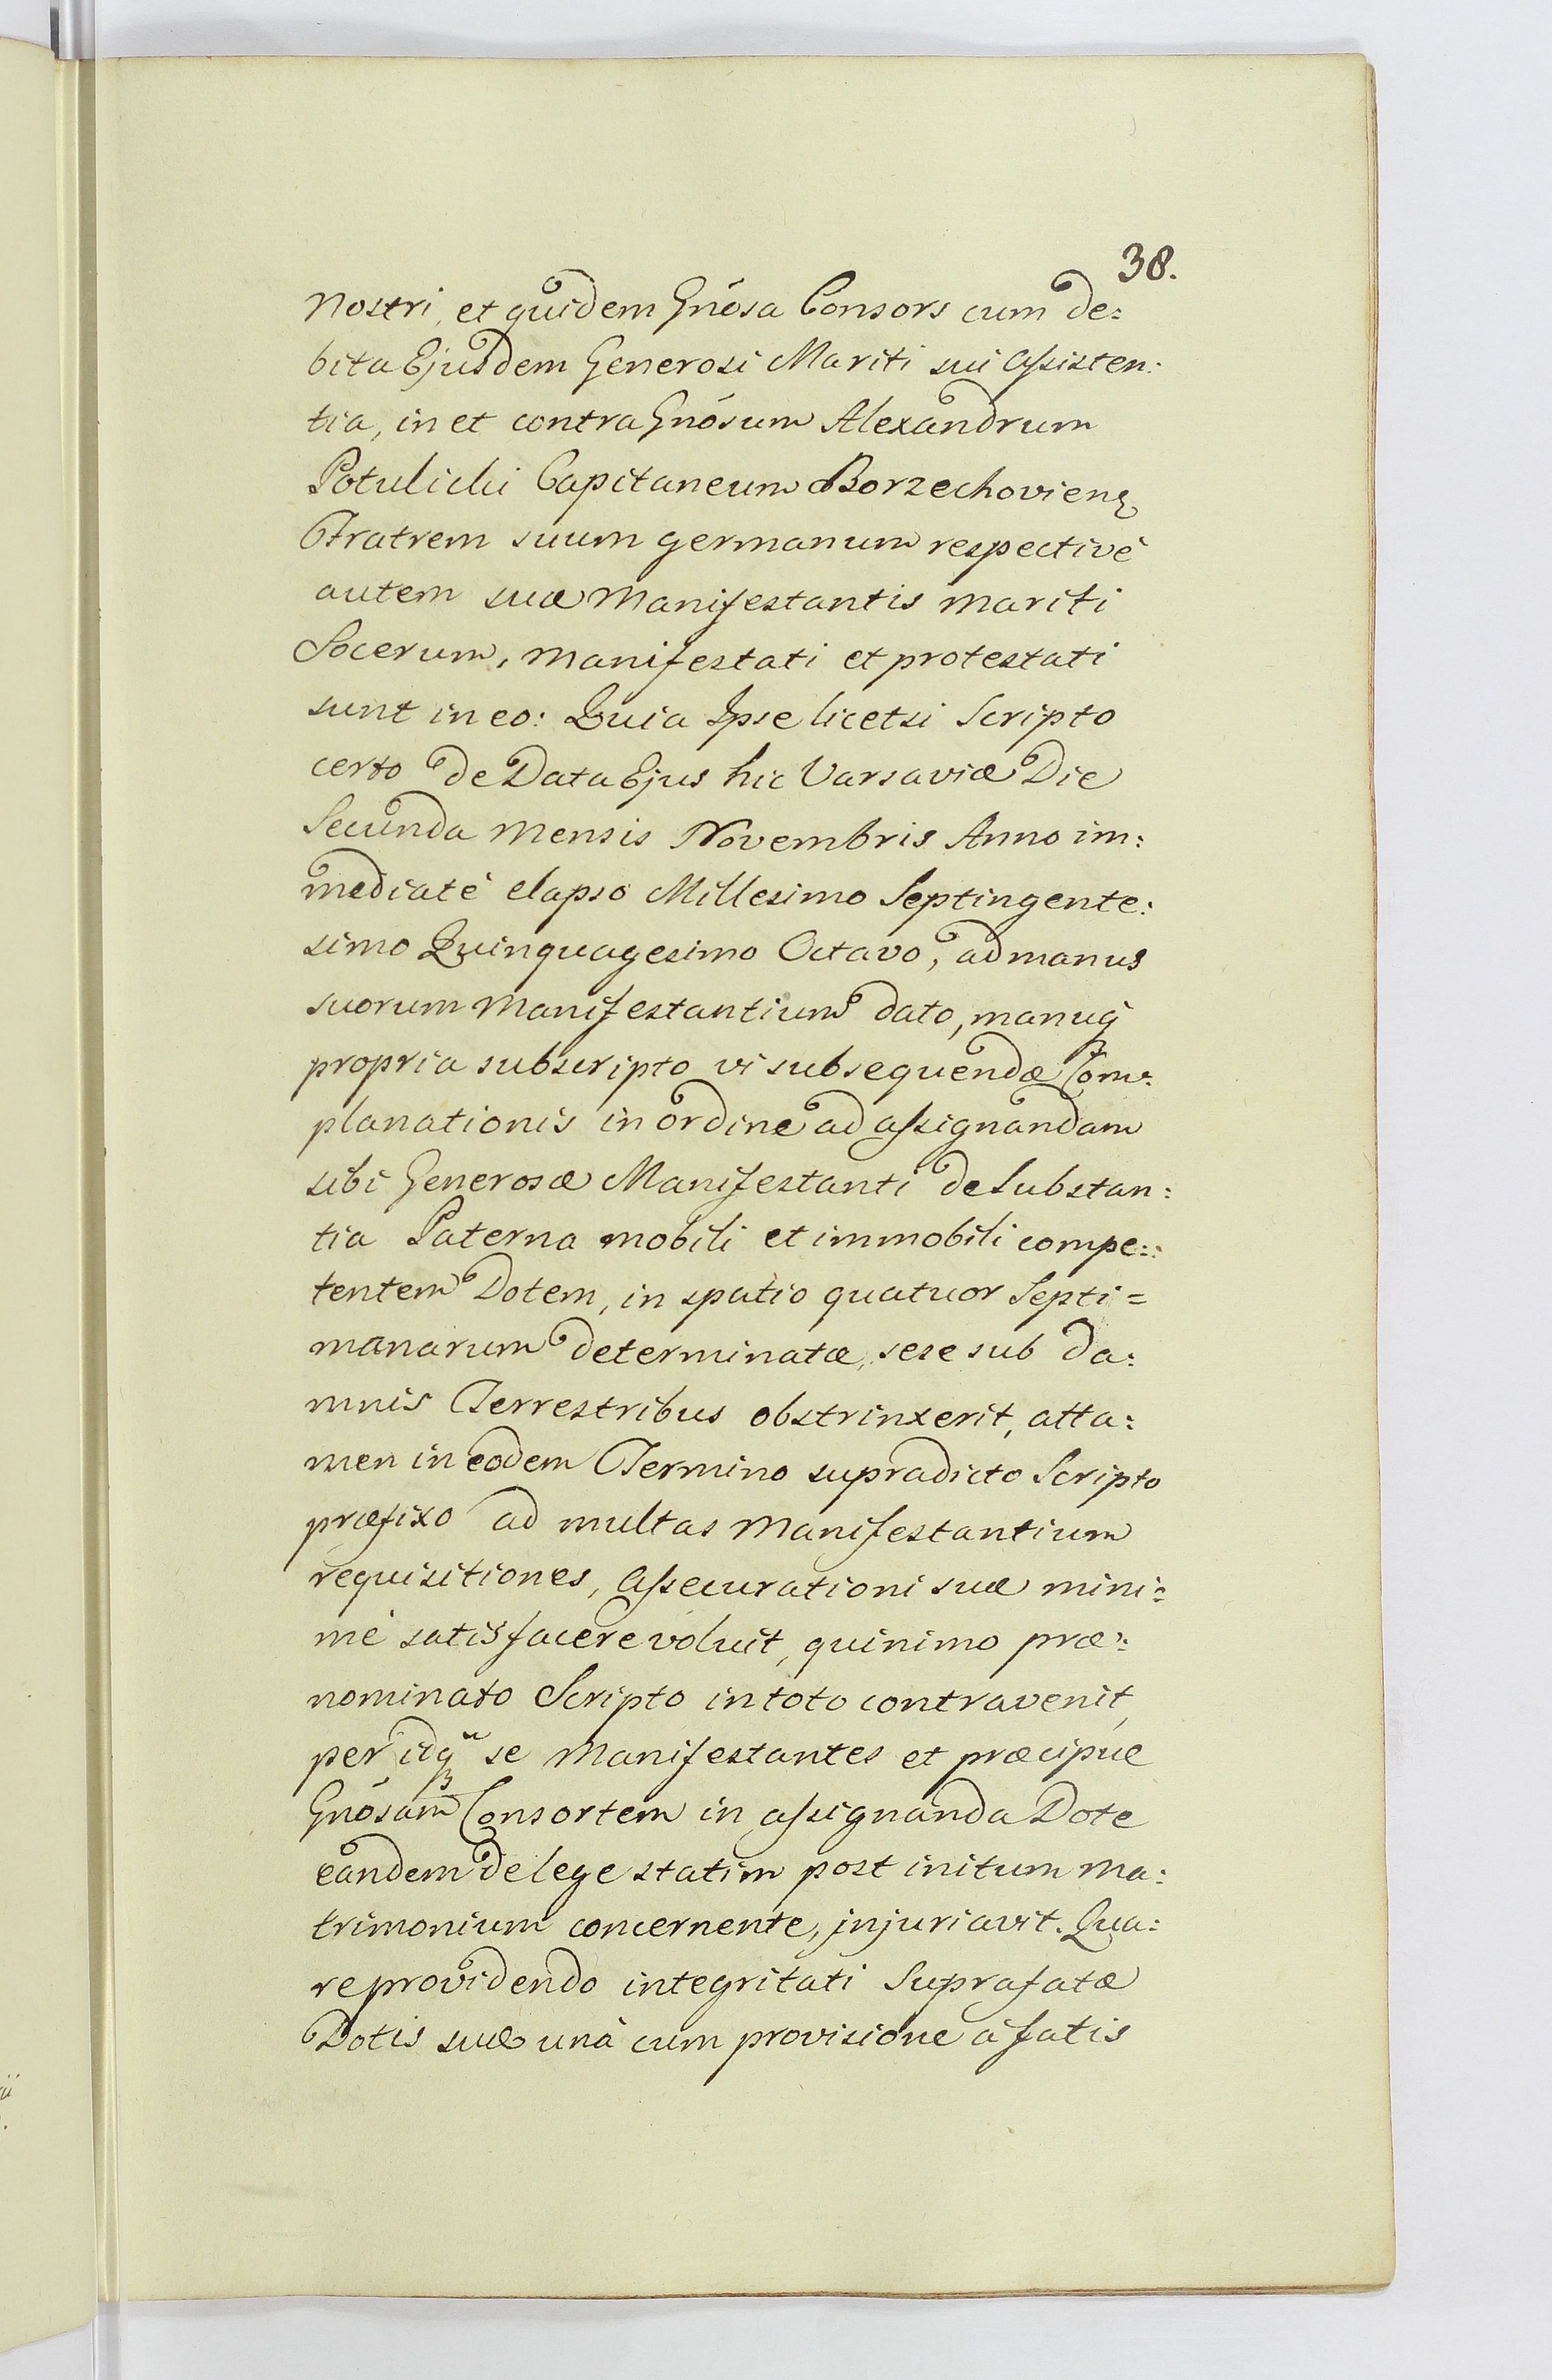 38.
nostri, et quidem Gnosa Consors cum de:
bita Ejusdem Generosi Mariti sui assisten:
tia, in et contra Gnosum Alexandrum
Potulicki Capitaneum Borzechovien:
Fratrem suum germanum respectivè
autem suæ Manifestantis mariti
Socerum, manifestati et protestati
sunt in eo: Quia Ipse licetsi Scripto
certo de Data Ejus hic Varsaviæ Die
Secunda mensis Novembris Anno im:
mediatè elapso Millesimo Septingente:
simo Quinquagesimo Octavo, ad manus
suorum Manifestantium dato, manuq
propria subscripto vi subsequendæ Com:
planationis in ordine ad assignandam
sibi Generosæ Manifestanti de Substan:
tia Paterna mobili et immobili compe:
tentem Dotem, in spatio quatuor Septi=
manarum determinatæ, sese sub da:
mnis Terrestribus obstrinxerit, atta:
men in eodem Termino supradicto Scripto
præfixo ad multas Manifestantium
requisitiones, assecurationi suæ mini:
mè satisfacere voluit, quinimo præ:
nominato Scripto in toto contravenit,
per idq se Manifestantes et præcipue
Gnosam Consortem in assignanda Dote
eandem de lege statim post initum ma:
trimonium concernente, injuriavit. Qua:
re providendo integritati Suprafatæ
Dotis suæ unà cum provisione à fatis